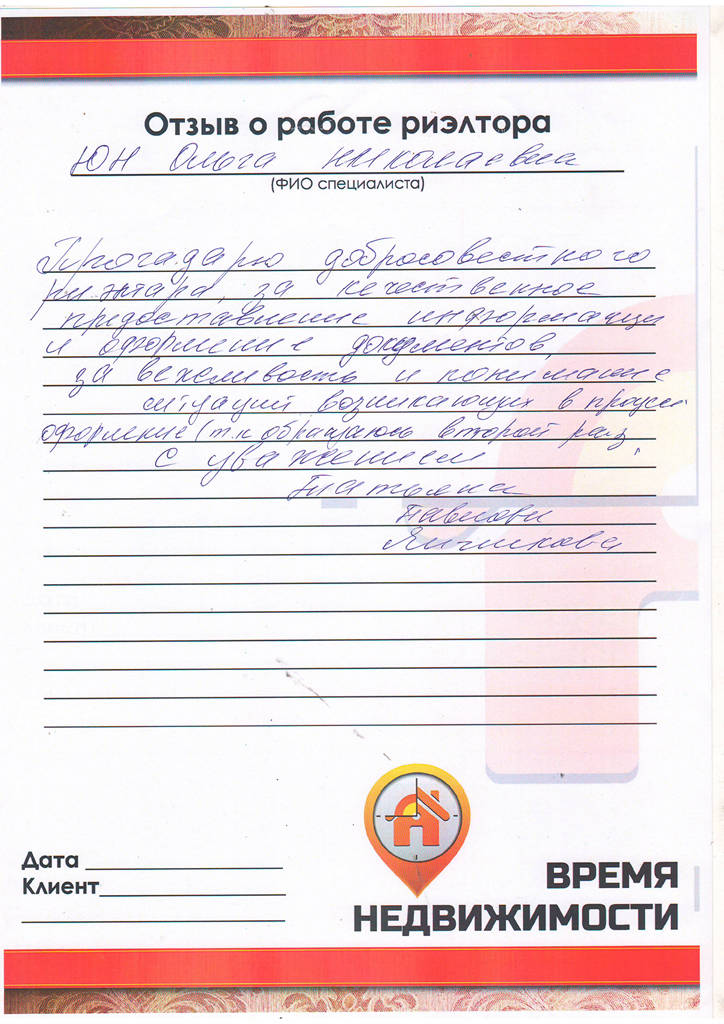 Отзыв о работе риэлтора
ЮН Ольга Николаевна
(ФИО специалиста)
добросовестного
риэлтара, за качественное
предоставление информации
и оформление документов,
за вежливость и понимание
ситуаций возникающих в процессе
оформление (т.к обращаюсь второй раз
с уважением
Татьяна
Павловн
Дата
Клиент
ВРЕМЯ
НЕДВИЖИМОСТИ